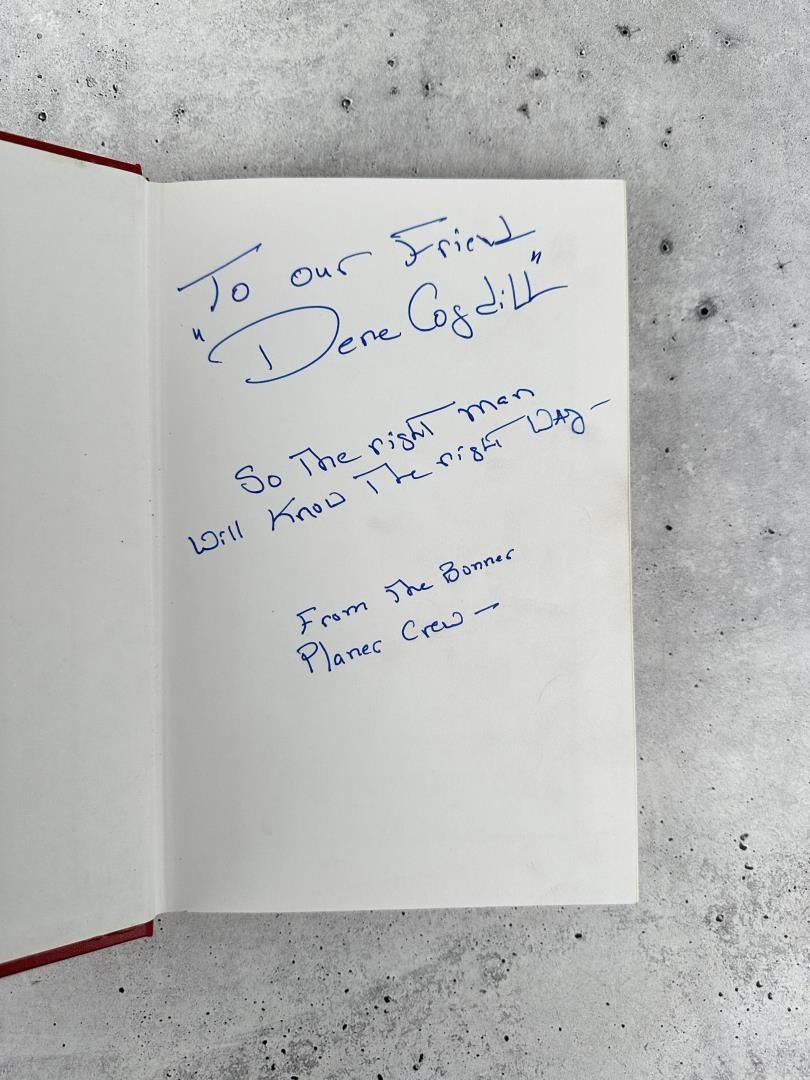 To our Friend
"Dene Cogdill"
So The right man
will Know The right WAy-
From The Bonner
Planer Crew -